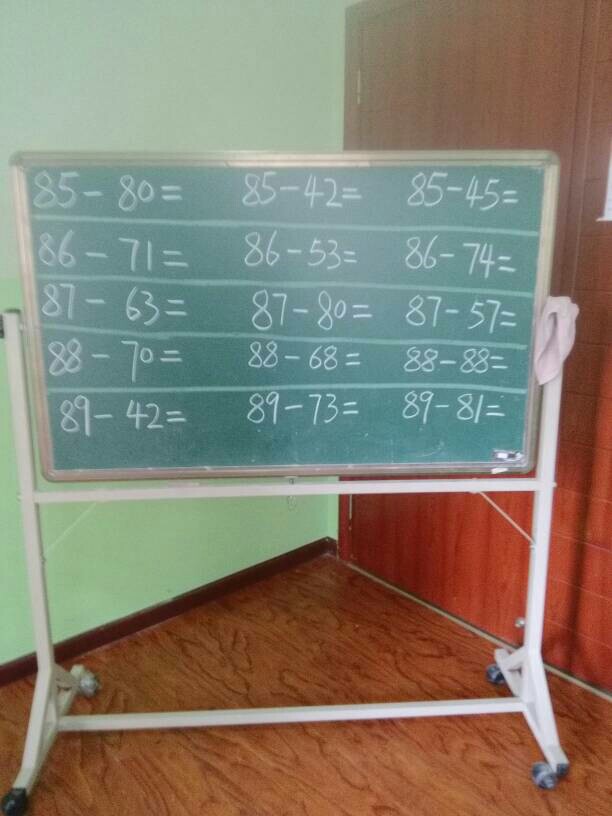 85-80= 85-42= 85-45=
86-71= 86-53= 86-74=
87-63= 87-80= 87-57=
88-70= 88-68= 88-88=
89-42= 89-73= 89-81=